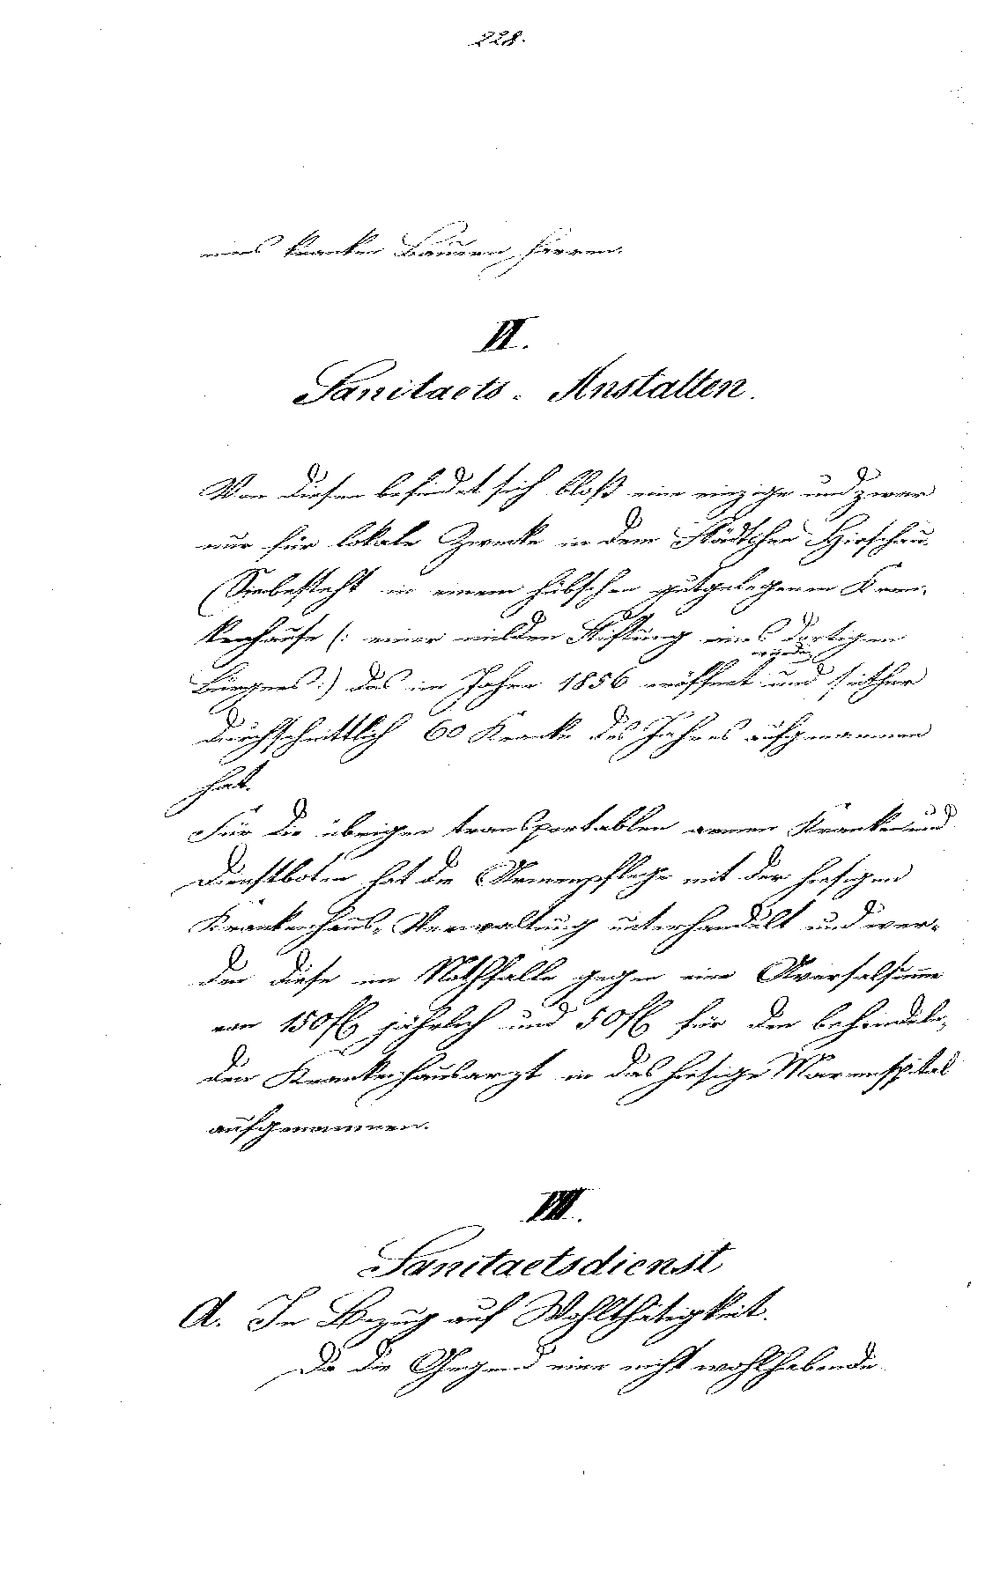 228.
eines kranken Bauern hörren.
VI.
Sanitaets-Anstalten.
Von diesen befindet sich bloß eine einzige und zwar
nur für lokale Zwecke in dem Städtchen Hirschau.
(Sie besteht in einem hübschen gutgelegenen Kran-
kenhause (: einer milden Stiftung eines dortigen
Bürgers:) das im Jahre 1856 eröffnet und seither
durchschnittlich 60 Kranke des Jahres aufgenommen
hat.
Für die übrigen transportablen armen Kranken und
Dienstboten hat die Armenpflege mit der hiesigen
Krankenhaus-Verwaltung unterhandelt und wer-
den diese im Nothfalle gegen eine Aversalsume
von 150 fl jährlich und 50 fl für den behandeln-
den Krankenhausarzt in das hiesige Marienspital
aufgenommen.
VII.
Sanitaetsdienst
A. In Bezug auf Wohlthätigkeit.
Da die Gegend eine nicht wohlhabende